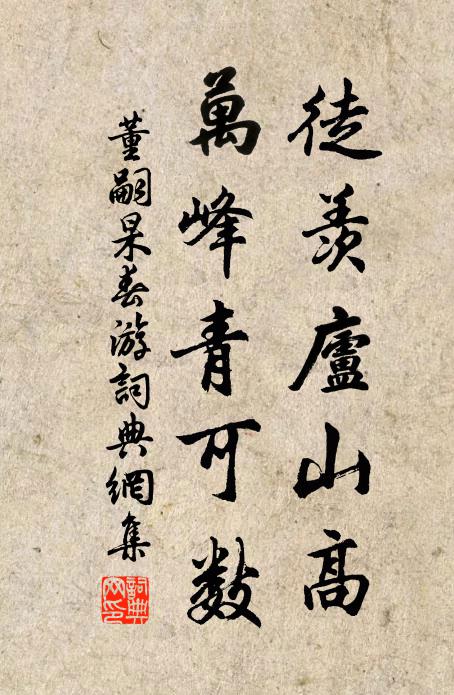 徒羨廬山高
萬峰青可數
董嗣杲春游詞典網集
詞典網印